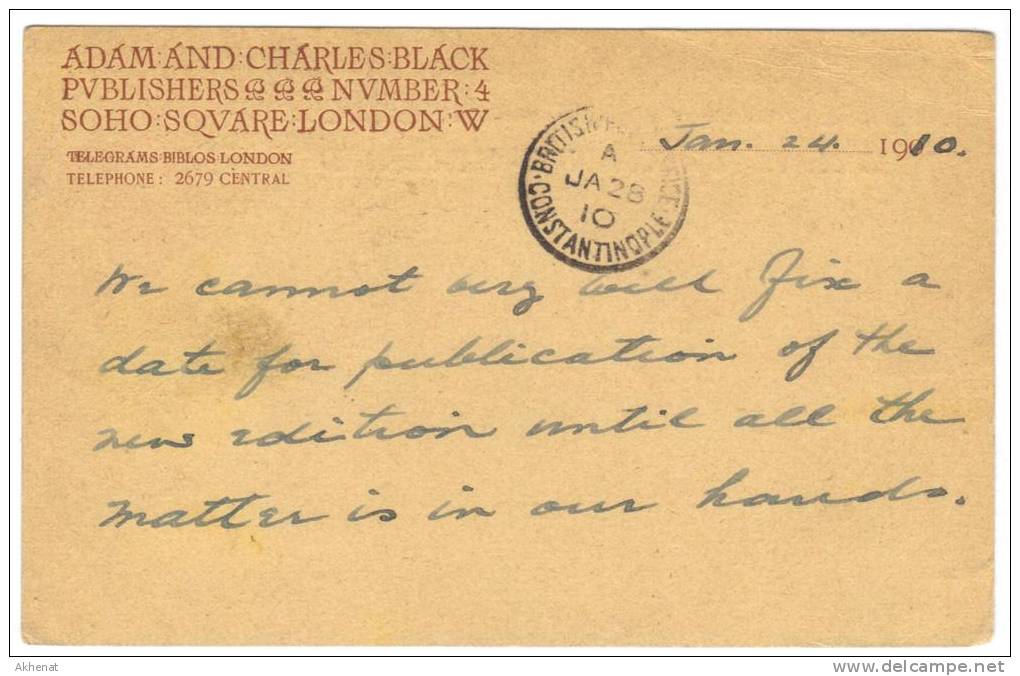 ADAM·AND·CHARLES·BLACK
PVBLISHERS NVMBER·4
SOHO·SQVARE·LONDON·W
TELEGRAMS·BIBLOS·LONDON
TELEPHONE: 2679 CENTRAL
Jan. 24. 1910.
BRITISH
A
JA 28
10
CONSTANTINOPLE
We cannot very well fix a
date for publication of the
new edition until all the
matter is in our hands.
Akhenat
delcampe.net